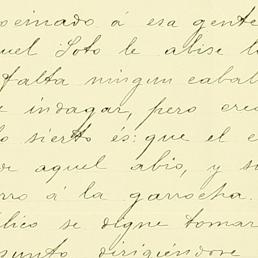 ocinado á esa gente
uel Soto le abise l
falta ningun cabal
indagar, pero cre
lo sierto és: que el c
de aquel abio, y s
rro á la garrocha.
lico se digne tomar
sunto dirigiéndose